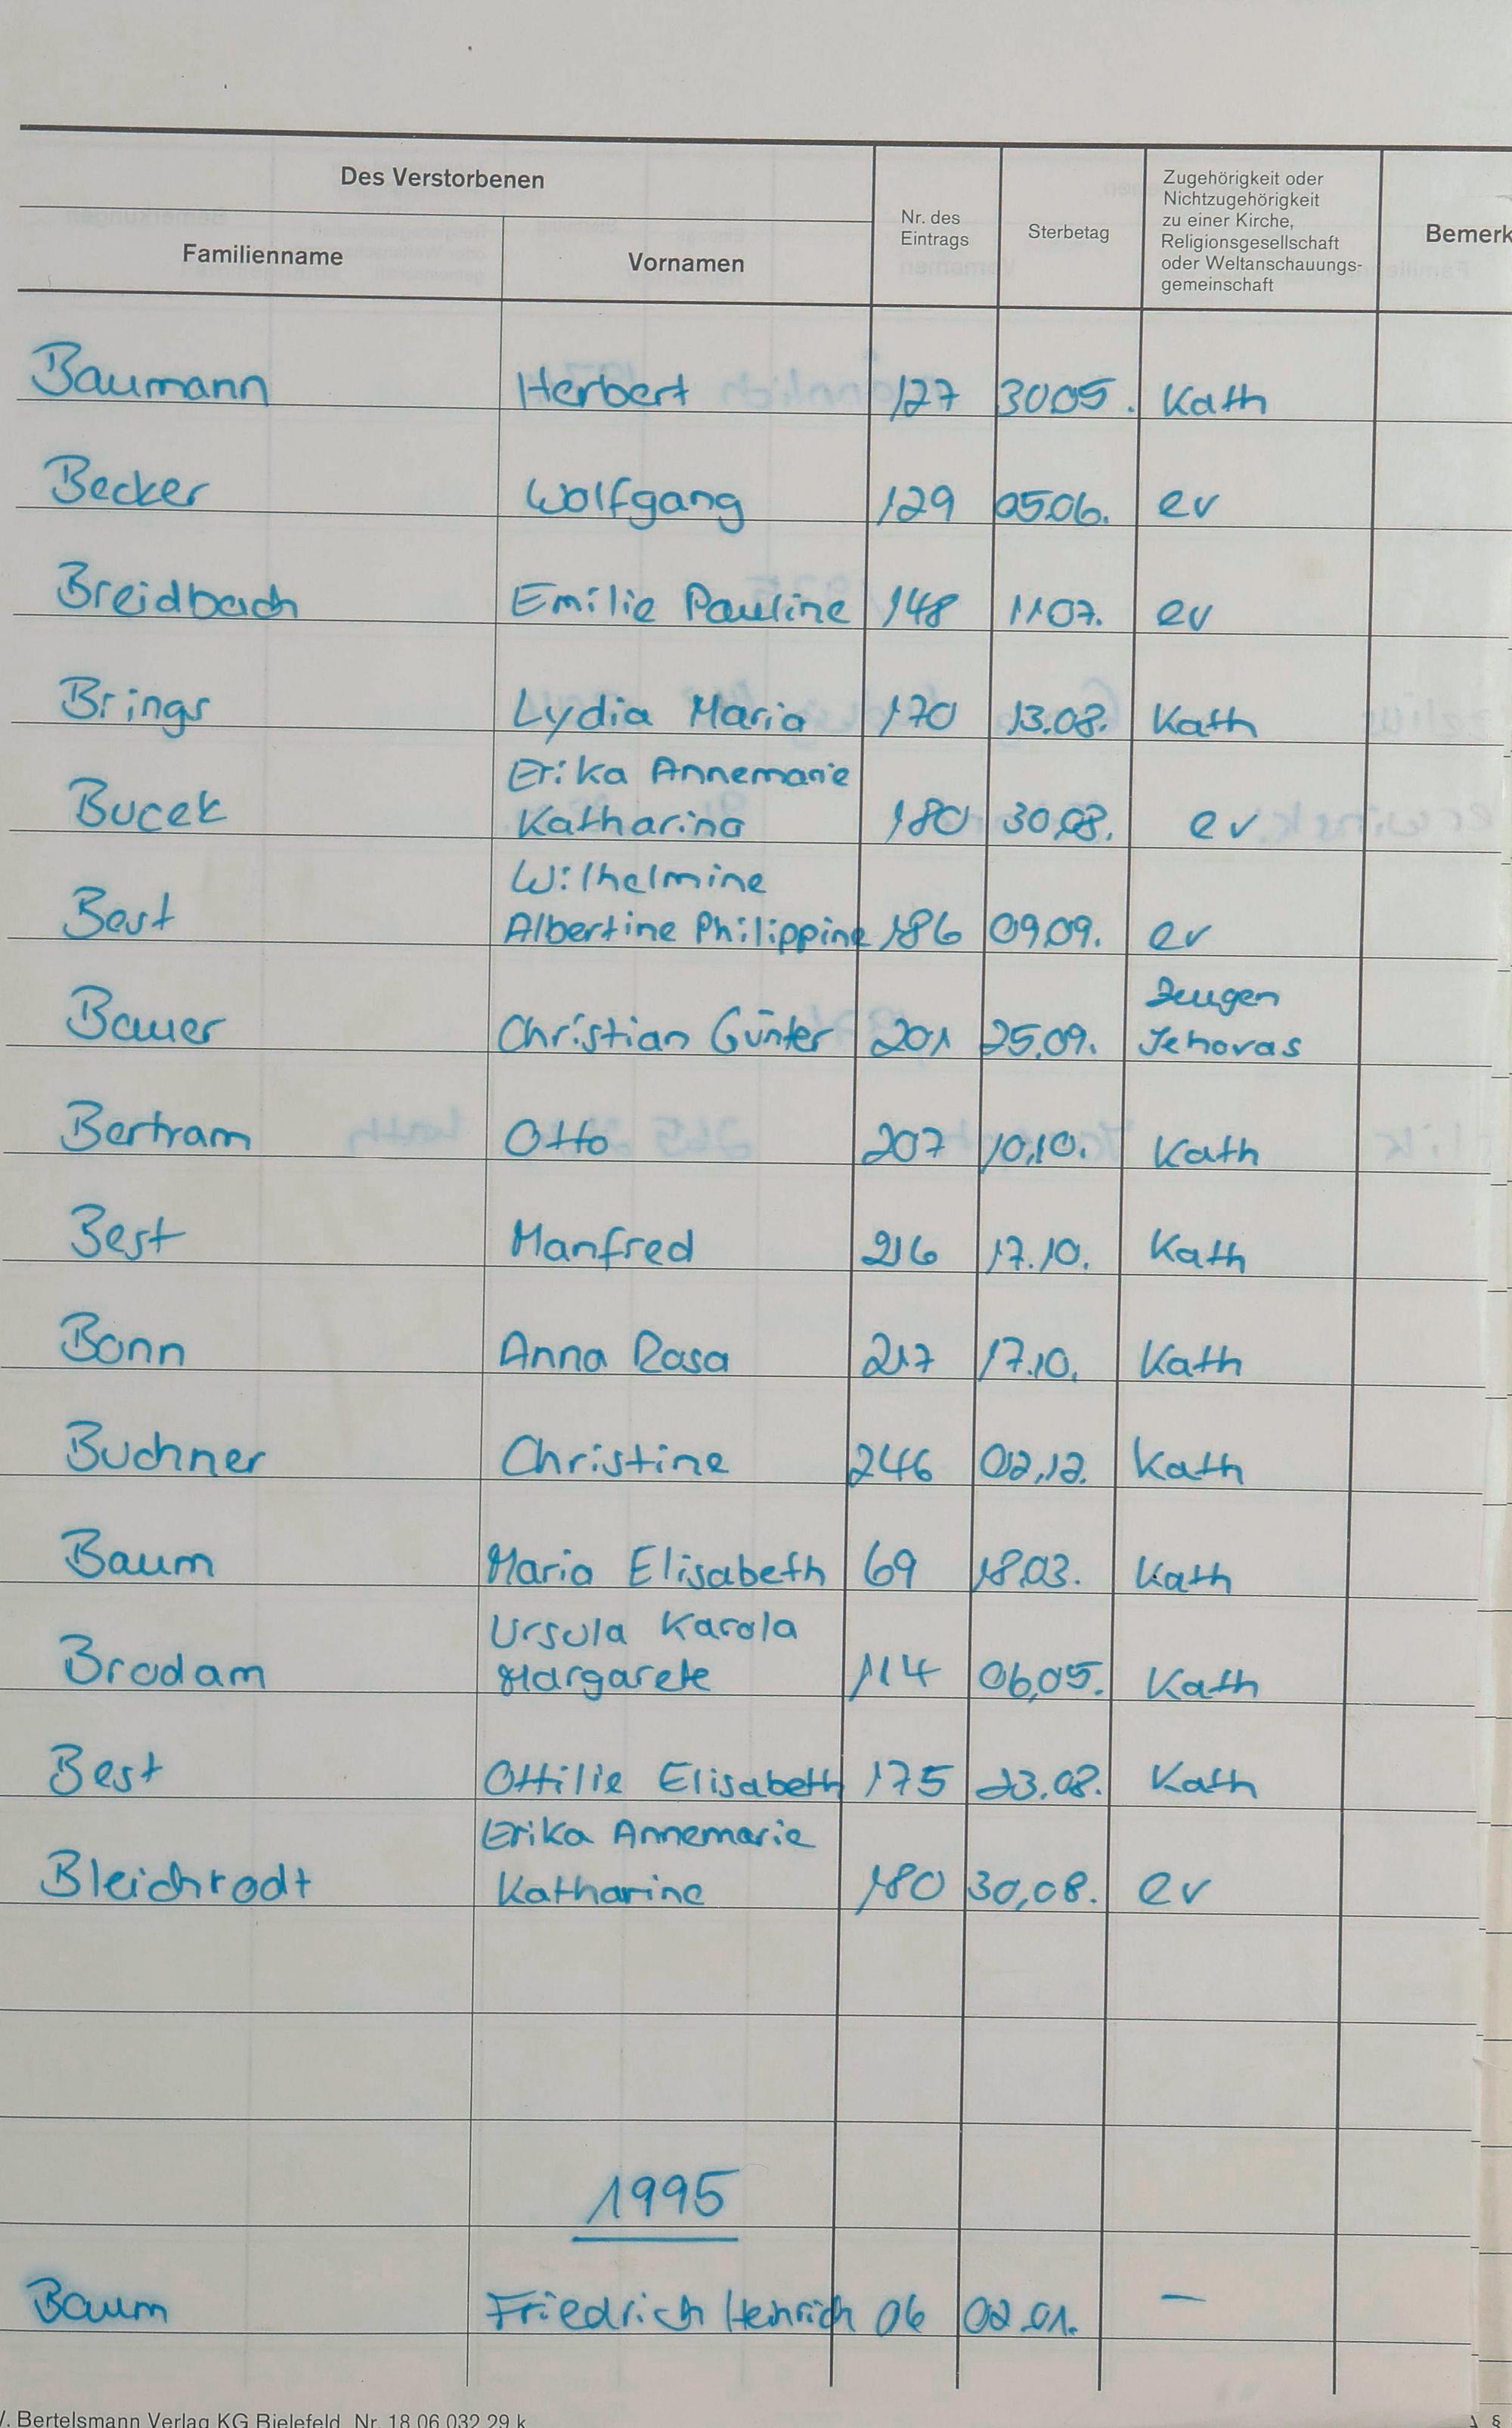 Des Verstorbenen
Familienname
Vornamen
Nr. des
Eintrags
Sterbetag
Zugehörigkeit oder
Nichtzugehörigkeit
zu einer Kirche,
Religionsgesellschaft
oder Weltanschauungs-
gemeinschaft
Bemerk
Baumann Herbert 127 3005. Kath
Becker Wolfgang 129 0506. ev
Breidbach Emilie Pauline 148 1107. ev
Brings Lydia Maria 170 13.08. Kath
Erika Annemarie
Bucek Katharina 180 30.08. ev
Wilhelmine
Best Albertine Philippine 186 0909. ev
Zeugen
Bauer Christian Günter 201 25.09. Jehovas
Bertram Otto 207 10.10. Kath
Best Manfred 216 17.10. Kath
Bonn Anna Rosa 217 17.10. Kath
Buchner Christine 246 02.12. Kath
Baum Maria Elisabeth 69 18.03. Kath
Ursula Karola
Brodam Margarete 114 06.05. Kath
Best Ottilie Elisabeth 175 23.08. Kath
Erika Annemarie
Bleichrodt Katharine 180 30.08. ev
1995
Baum Friedrich Heinrich 06 02.01. —
. Bertelsmann Verlag KG Bielefeld Nr. 18 06 032 29 k